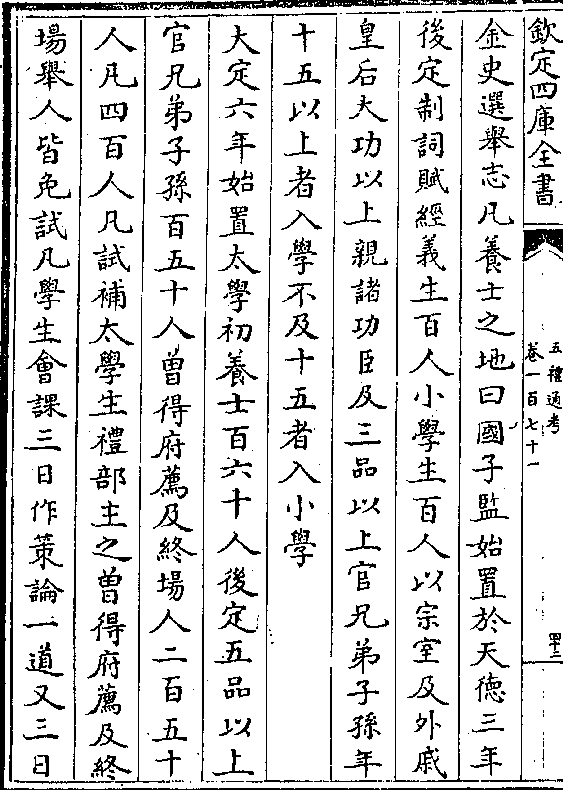 欽定四庫全書
五禮通考
卷一百七十一
四十二
金史選舉志凡養士之地曰國子監始置於天德三年
後定制詞賦經義生百人小學生百人以宗室及外戚
皇后大功以上親諸功臣及三品以上官兄弟子孫年
十五以上者入學不及十五者入小學
大定六年始置太學初養士百六十人後定五品以上
官兄弟子孫百五十人曾得府薦及終場人二百五十
人凡四百人凡試補太學生禮部主之曾得府薦及終
場舉人皆免試凡學生會課三日作策論一道又三日